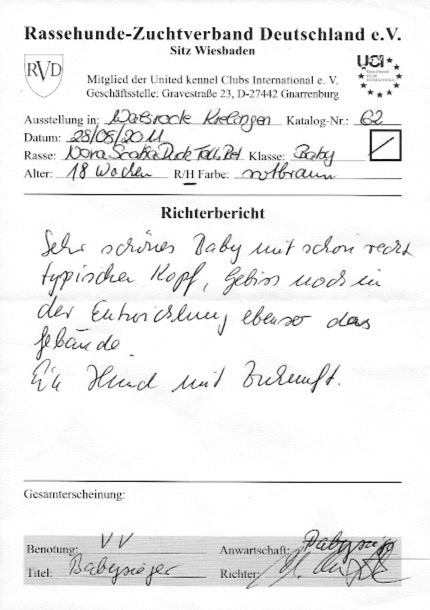 Rassehunde-Zuchtverband Deutschland e.V.
Sitz Wiesbaden
RVD
UCI
Mitglied der United kennel Clubs International e. V.
Geschäftsstelle: Gravestraße 23, D-27442 Gnarrenburg
Ausstellung in: Walsrode Krelingen Katalog-Nr.: 62
Datum: 28/08/2011
Rasse: Nova Scotia Duck Toll. Ret Klasse: Baby
Alter: 18 Wochen R/H Farbe: rotbraun
Richterbericht
Sehr schönes Baby mit schon recht
typischen Kopf, Gebiss noch in
der Entwicklung ebenso das
Gebäude.
Ein Hund mit Zukunft.
Gesamterscheinung:
Benotung: VV Anwartschaft: Babysieger
Titel: Babysieger Richter: